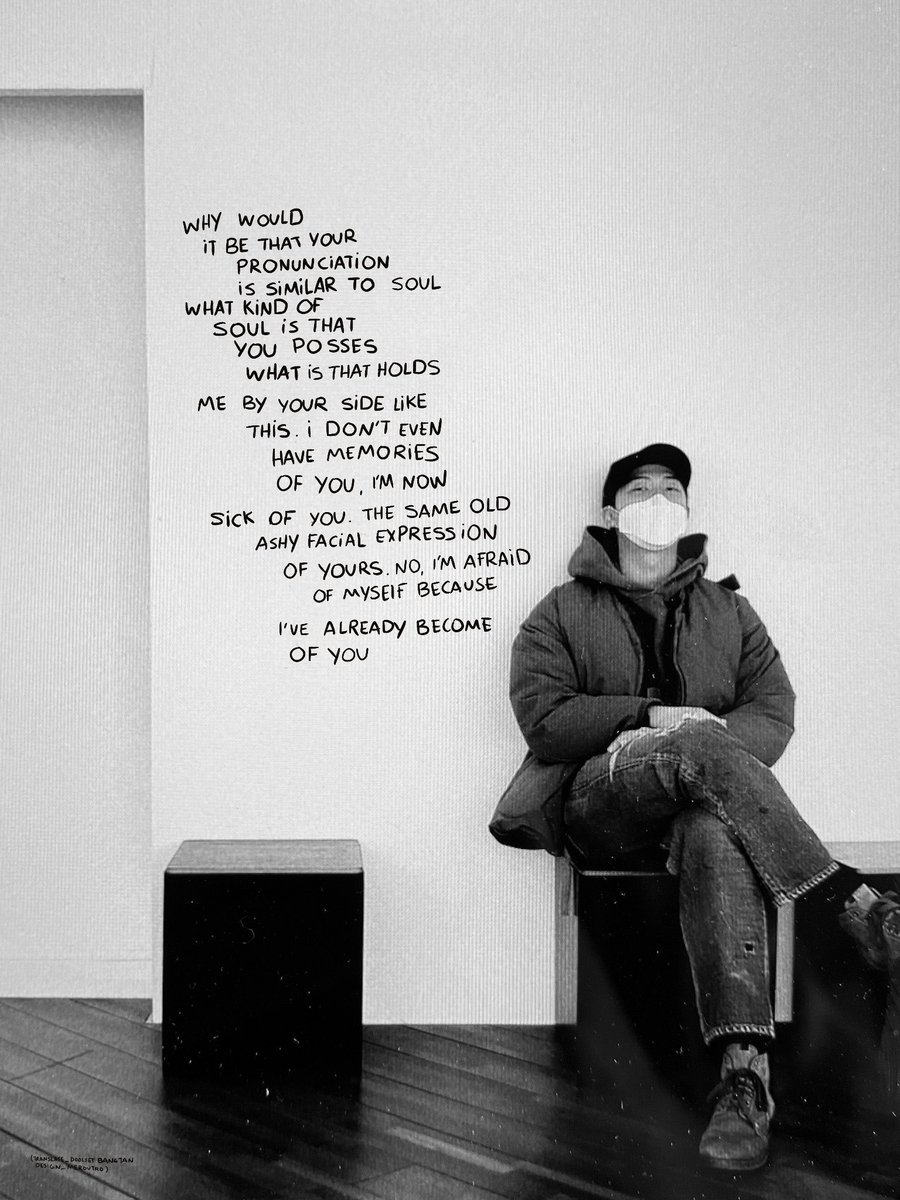 WHY WOULD
iT BE THAT YOUR
PRONUNCiATiON
iS SiMiLAR TO SOUL
WHAT KiND OF
SOUL iS THAT
YOU POSSES
WHAT iS THAT HOLDS
ME BY YOUR SiDE LiKE
THiS. i DON'T EVEN
HAVE MEMORiES
OF YOU, I'M NOW
SiCK OF YOU. THE SAME OLD
ASHY FACiAL EXPRESSiON
OF YOURS. NO, I'M AFRAiD
OF MYSElF BECAUSE
I'VE ALREADY BECOME
OF YOU
(TRANSLATE_DOOLSET BANGTAN
DESIGN_MEROUTRO)